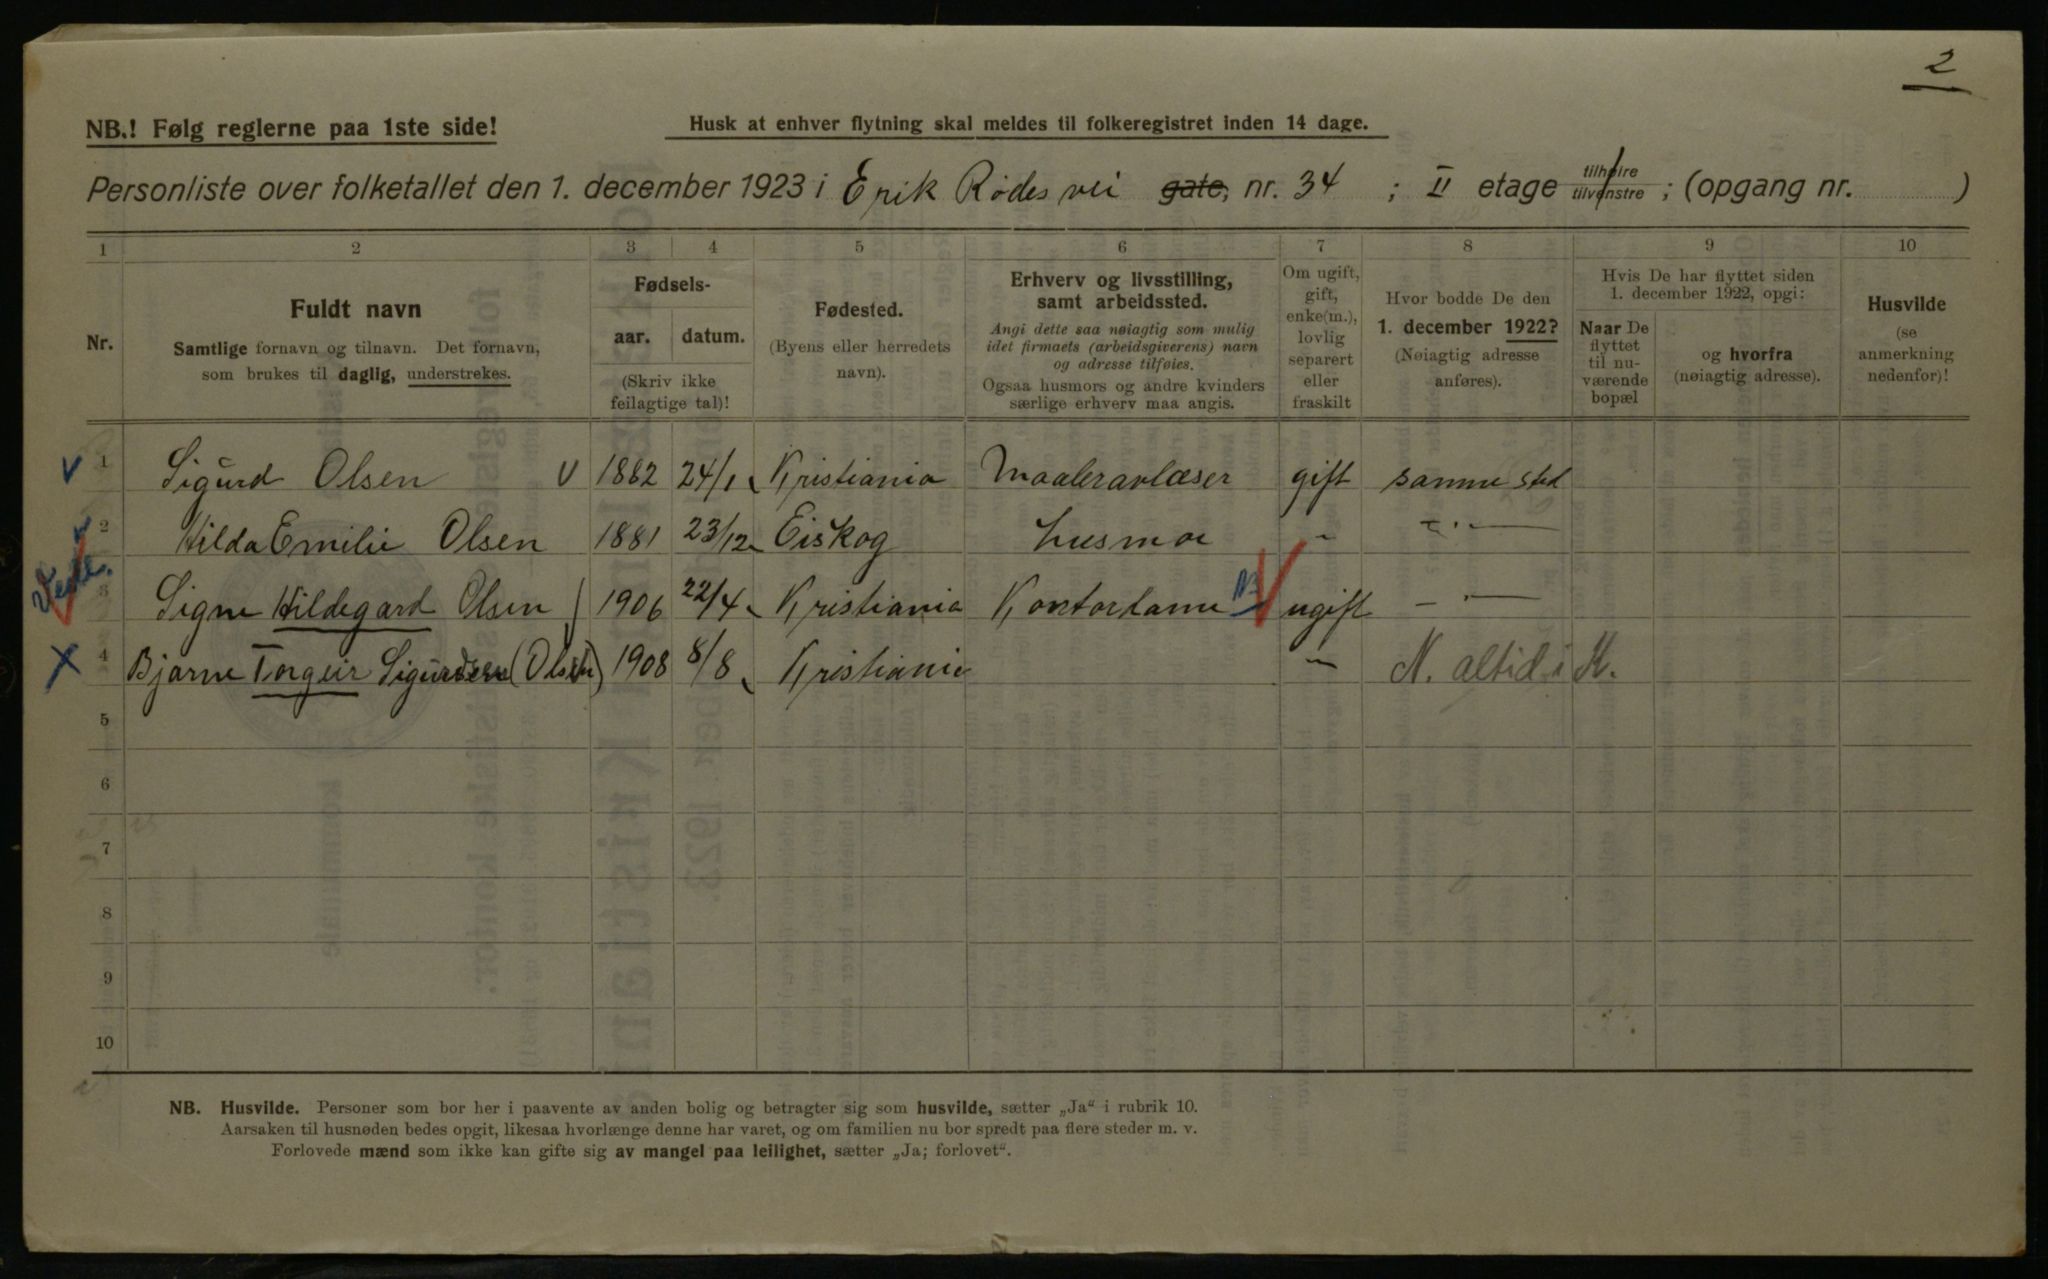 2
NB.! Følg reglerne paa 1ste side!
Husk at enhver flytning skal meldes til folkeregistret inden 14 dage.
Personliste over folketallet den 1. december 1923 i Erik Rødes vei gate, nr. 34 ; II etage tilhøire tilvenstre ; (opgang nr. )
1 2 3 4 5 6 7 8 9 10
Nr.
Fuldt navn
Samtlige fornavn og tilnavn. Det fornavn,
som brukes til daglig, understrekes.
Fødsels-
aar. datum.
(Skriv ikke
feilagtige tal)!
Fødested.
(Byens eller herredets
navn).
Erhverv og livsstilling,
samt arbeidssted.
Angi dette saa nøiagtig som mulig
idet firmaets (arbeidsgiverens) navn
og adresse tilføies.
Ogsaa husmors og andre kvinders
særlige erhverv maa angis.
Om ugift,
gift,
enke(m.),
lovlig
separert
eller
fraskilt
Hvor bodde De den
1. december 1922?
(Nøiagtig adresse
anføres).
Hvis De har flyttet siden
1. december 1922, opgi:
Naar De
flyttet
til nu-
værende
bopæl
og hvorfra
(nøiagtig adresse).
Husvilde
(se
anmerkning
nedenfor)!
1 Sigurd Olsen 1882 24/1 Kristiania Maaleravlæser gift samme sted
2 Hilda Emilie Olsen 1881 23/12 Eiskog husmor " — " —
3 Signe Hildegard Olsen 1906 22/4 Kristiania Kontordame NB ugift — " —
4 Bjarne Torgeir Sigurdsen (Olsen) 1908 8/8 Kristiania " N. altid i K.
5
6
7
8
9
10
NB. Husvilde. Personer som bor her i paavente av anden bolig og betragter sig som husvilde, sætter „Ja“ i rubrik 10.
Aarsaken til husnøden bedes opgit, likesaa hvorlænge denne har varet, og om familien nu bor spredt paa flere steder m. v.
Forlovede mænd som ikke kan gifte sig av mangel paa leilighet, sætter „Ja; forlovet“.